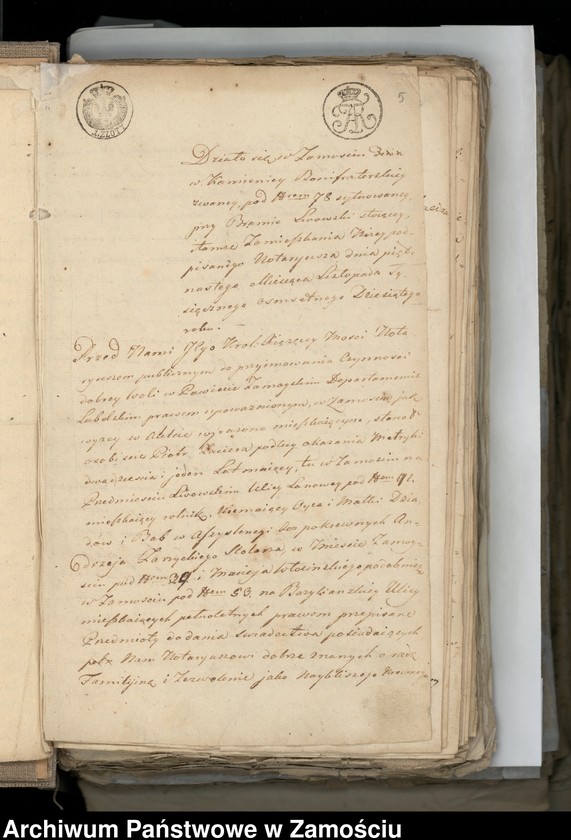 5
Działo się w Zamościu dnia
w Kamienicy Bonifraterskiey
zwaney, pod Nrem 78 sytuowaney,
przy Bramie Lwowski stojący,
tamże Zamieszkania Niżey pod-
pisanego Notaryusza dnia pięt-
nastego Miesiąca Listopada Ty-
siącznego osmsetnego Dziesiątego
roku.
Przed Nami Jego Krol: Xiążęcey Mości Nota
ryuszem publicznym do przyjmowania Czynności
dobrey Woli w Powiecie Zamoyskim Departamencie
Lubelskim prawem upoważnionym, w Zamościu jak
wyżey w Akcie wyrażono mieszkaiącym, stawał
osobiście Piotr podług okazania Metryki
dwadzieścia i jeden Lat maiący, tu w Zamościu na
Przedmieściu Lwowskim Ulicy Lanowey pod Nrem
mieszkaiący rolnik, Niemaiący Oyca i Matki Dzia
dów i Bab w Assystencyi pokrewnych An-
drzeja Zarzyckiego Stolarza w Mieście Zamoy-
sciu pod Nrem 39 i Macieja
w Zamościu pod Nrem 53 na Bazyliańskiey Ulicy
mieszkaiących pełnoletnych prawem przepisane
Przedmioty do dania Swiadectwa posiadaiących
Nam Notaryuszowi dobrze znanych o
Familijną i Zezwolenie jako Naybliższego
Archiwum Państwowe w Zamościu